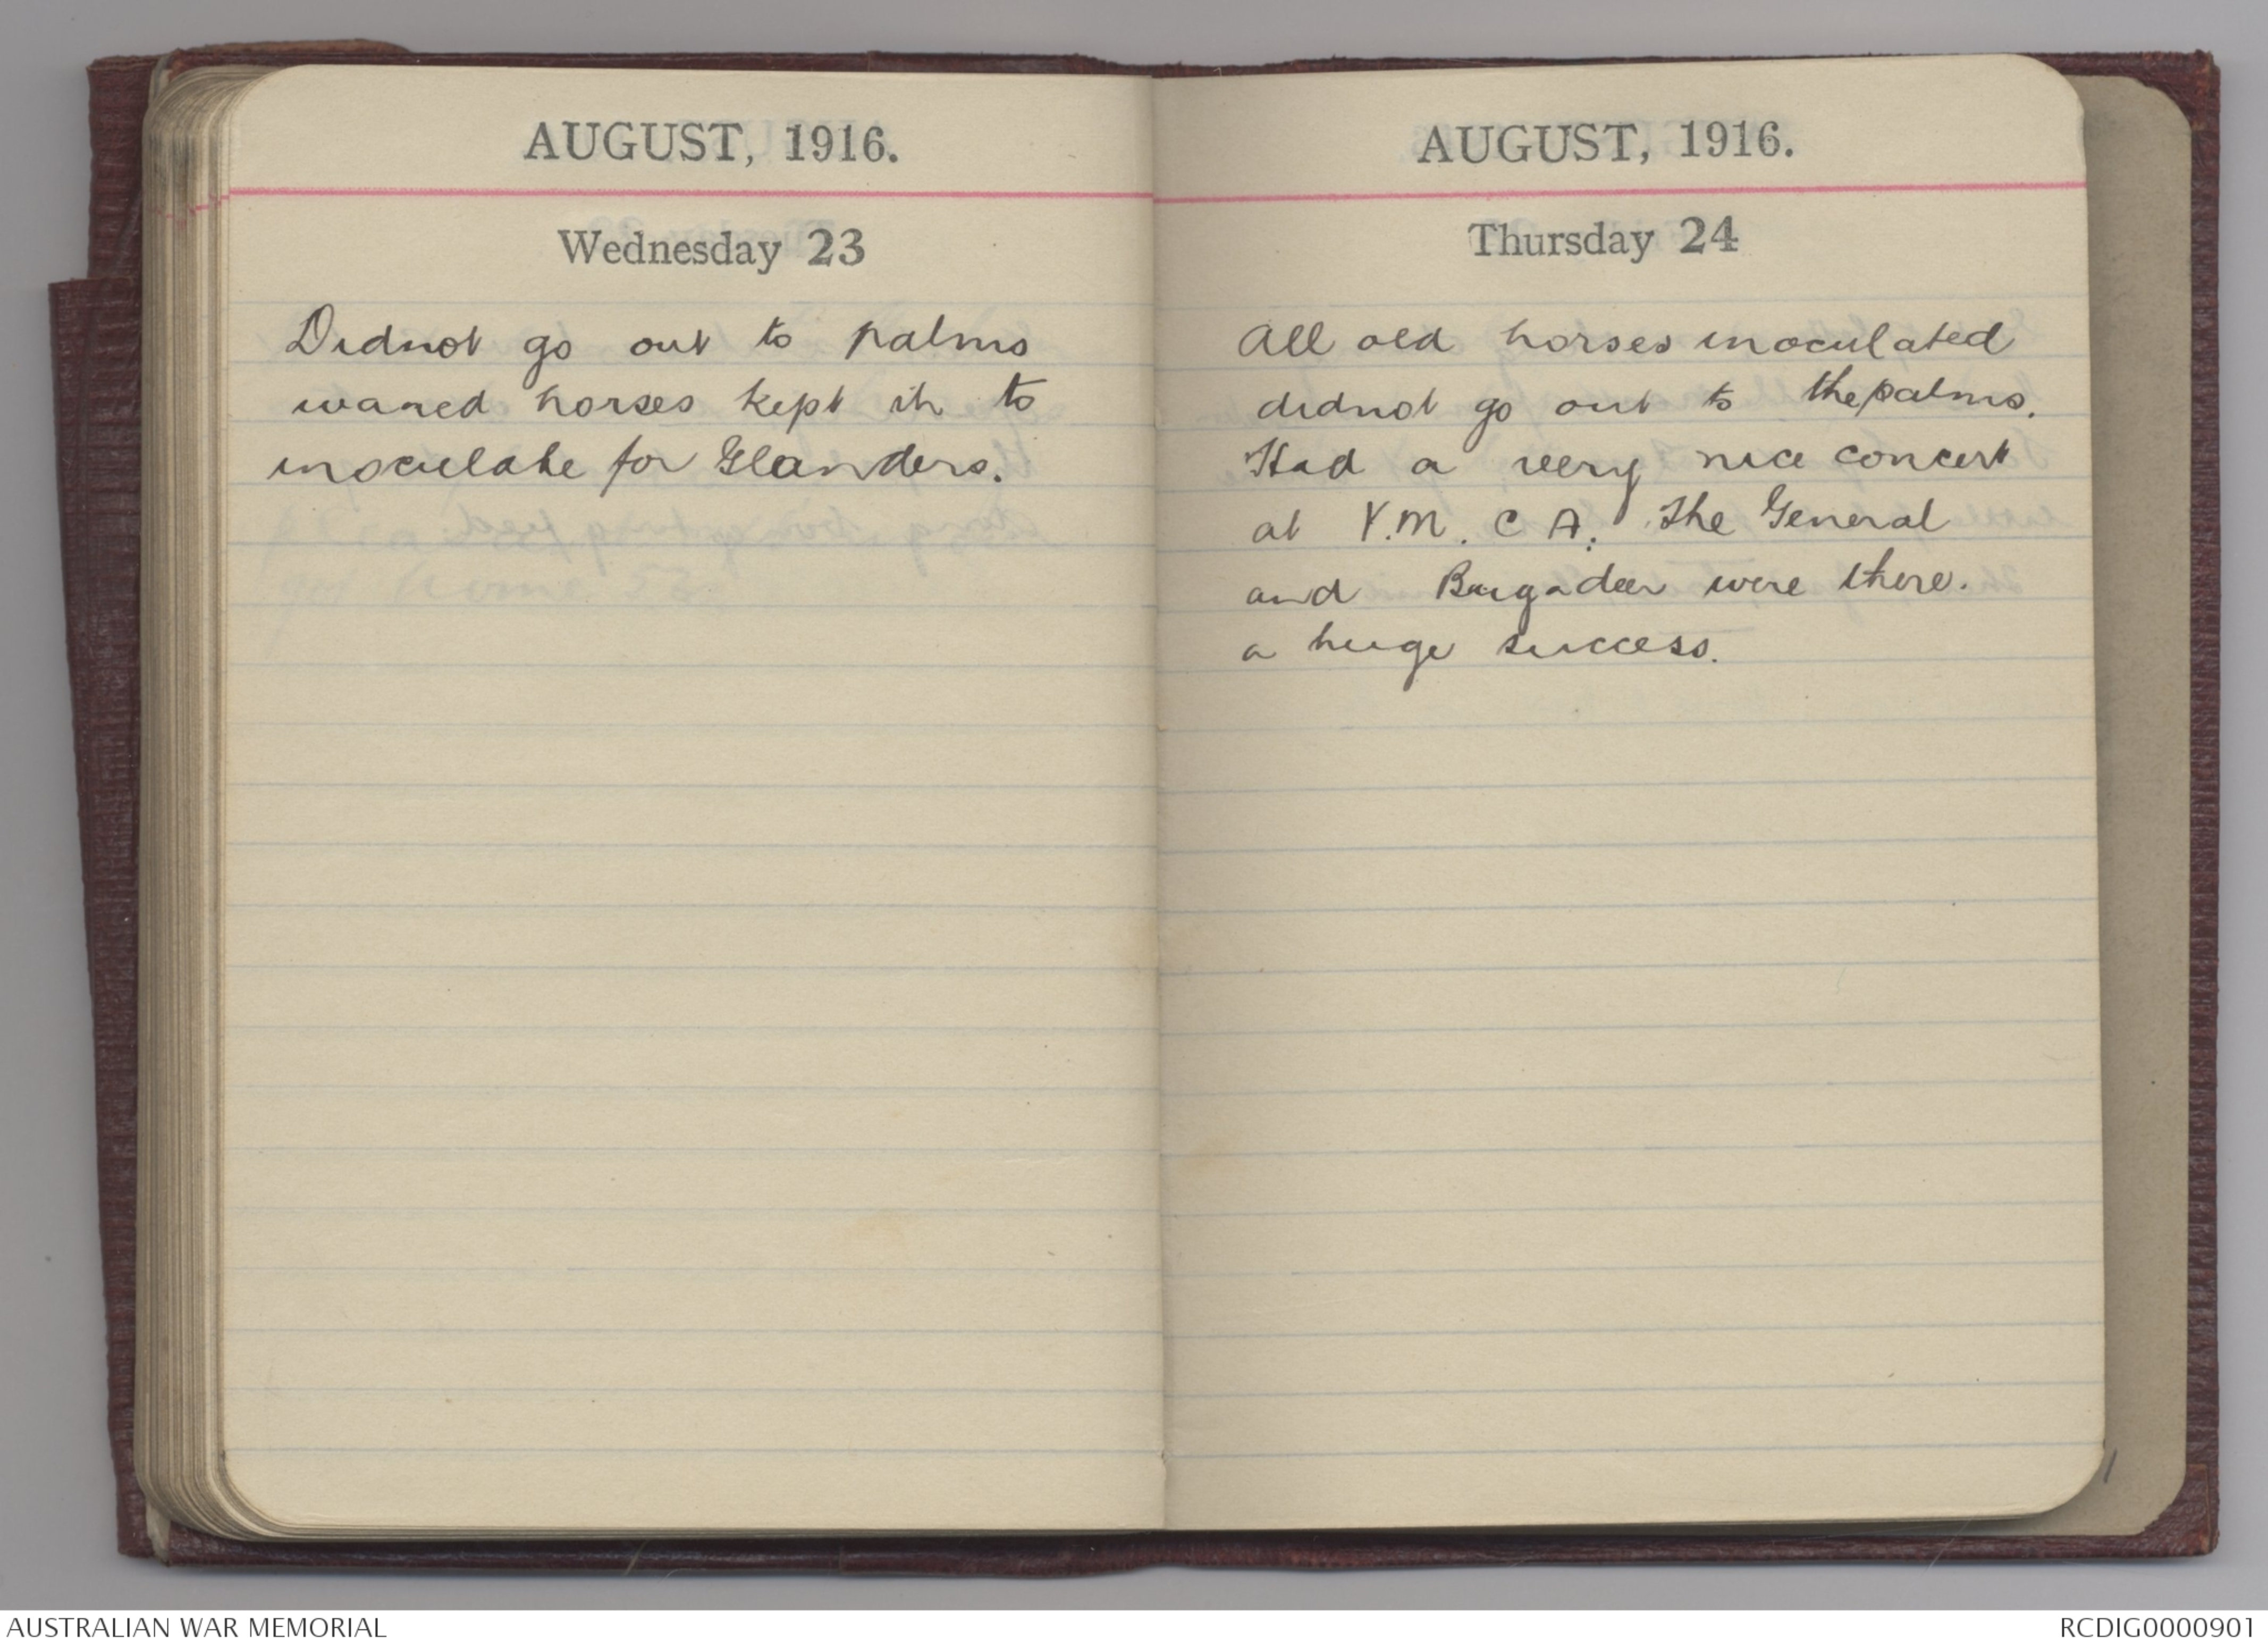 AUGUST, 1916.
Wednesday 23
Didnot go out to palms
waned horses kept in to
inoculate for Glanders.
AUGUST, 1916.
Thursday 24
All old horses inoculated
didnot go out to the palms.
Had a very nice concert
at Y.M.C A. The General
and Brigadeer were there.
a huge success.
AUSTRALIAN WAR MEMORIAL
RCDIG0000901